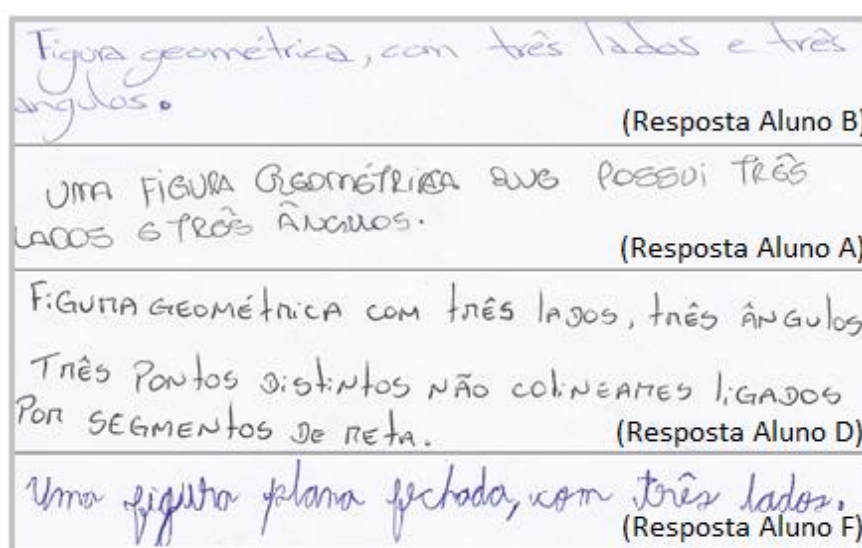 Figura geométrica, com três lados e três
angulos.
(Resposta Aluno B)
UMA FIGURA GEOMÉTRICA QUE POSSUI TRÊS
LADOS E TRÊS ÂNGULOS.
(Resposta Aluno A)
FIGURA GEOMÉTRICA COM três lados, três ÂNGulos
Três Pontos Distintos NÃO COLINEARES LIGADOS
POR SEGMENtos De RETA.
(Resposta Aluno D)
Uma figura plana fechada, com três lados.
(Resposta Aluno F)